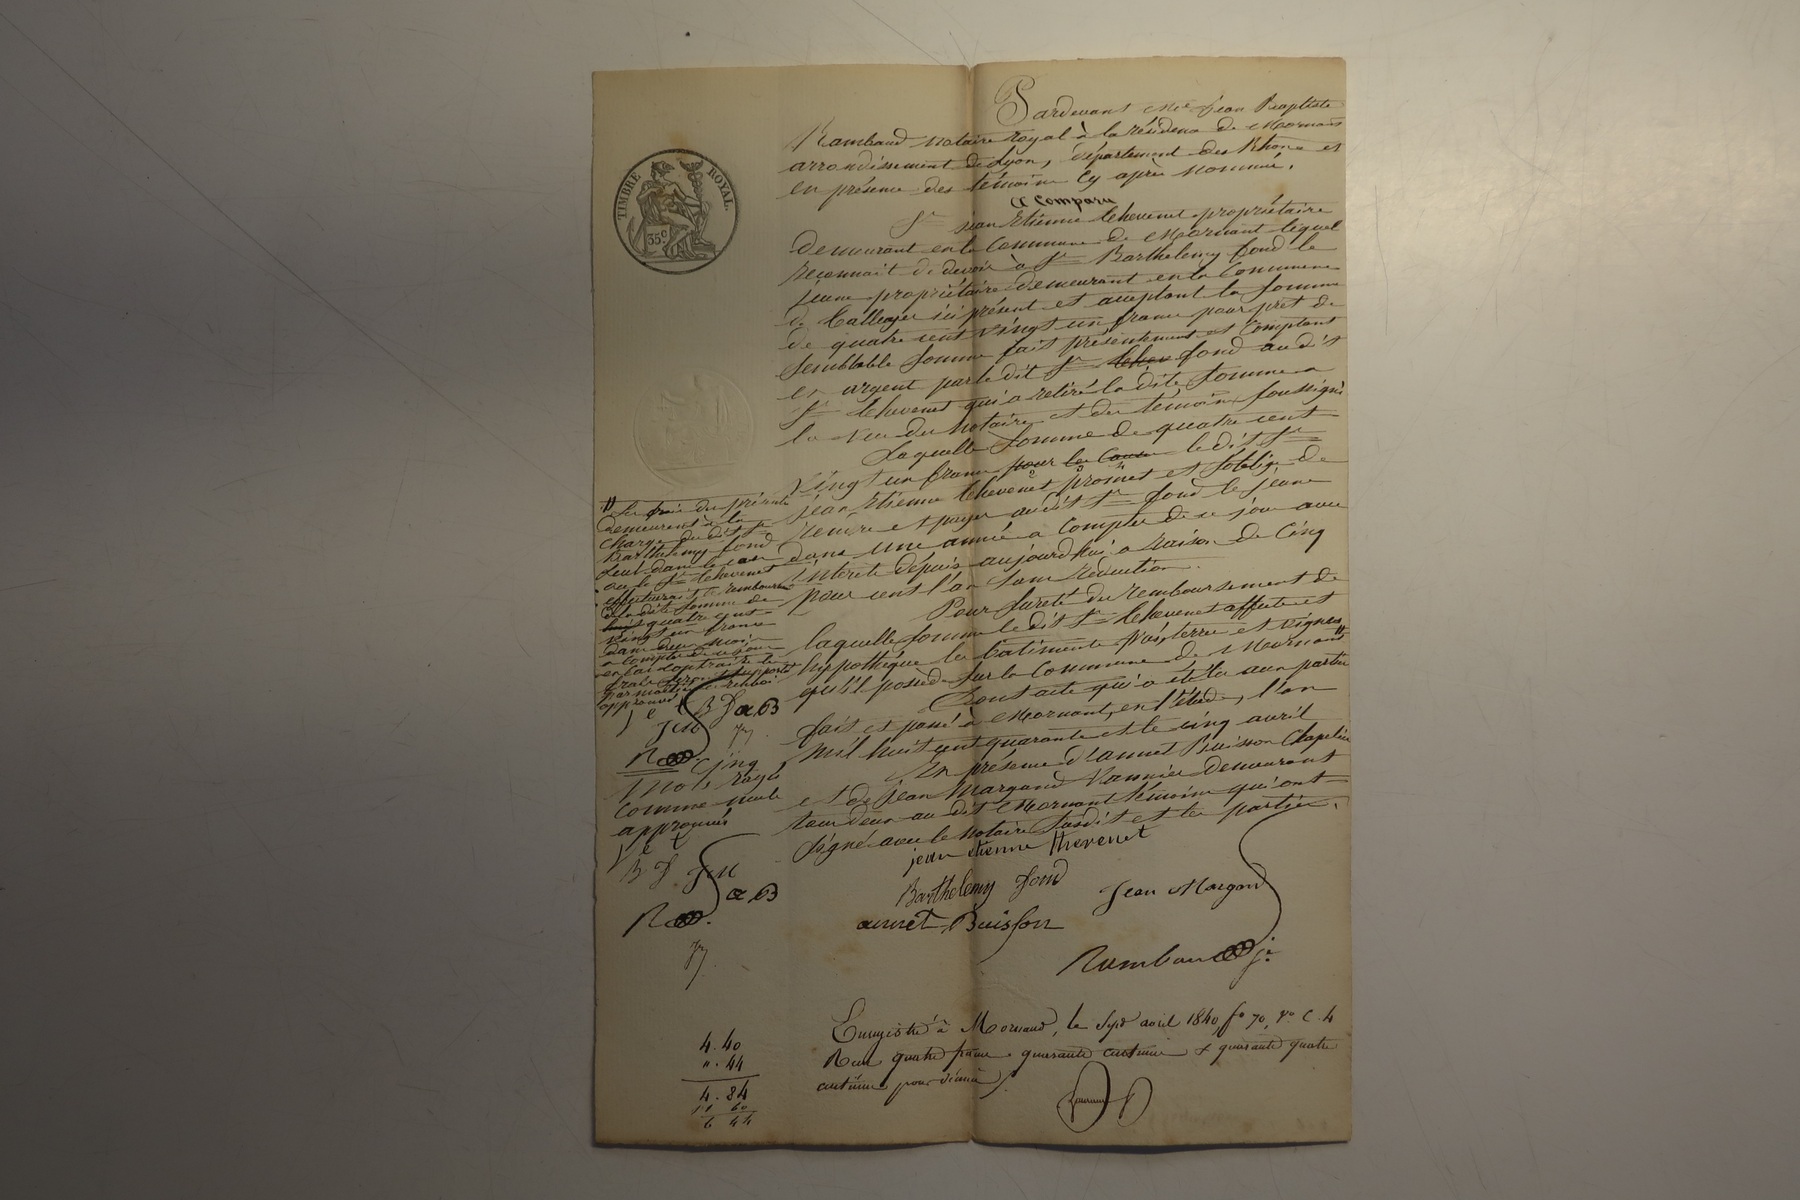 TIMBRE ROYAL.
35c
Pardevant Me Jean Baptiste
Rambaud Notaire Royal à la résidence de Mornant
arrondissement de Lyon, département du Rhône et
en présence des témoins cy après nommés.
A Comparu
Sr jean Etienne thevenet propriétaire
demeurant en la Commune de Mornant lequel
reconnait de devoir à Sr Barthelemy fond le
jeune propriétaire demeurant en la Commune
de ici présent et acceptant la somme
de quatre cent vingt un francs pour prêt de
semblable somme fait présentement et comptant
en argent par le dit Sr fond au dit
Sr thevenet qui a retiré la dite somme a
la vue du Notaire et des témoins soussignés
Laquelle somme de quatre cent
vingt un francs pour les le dit Sr
jean Etienne thevenet promet et s'oblige de
rendre et payer au dit Sr fond le jeune
dans une année a compter de ce jour avec
intérêts depuis aujourd'hui a raison de cinq
pour cent l'an sans rétention.
Pour sureté du remboursement de
laquelle somme le dit Sr thevenet affecte et
hypothéque les batiments, prés, terres et vignes
qu'il possède sur la Commune de Mornant "
Dont acte qui a été lu aux parties
fait et passé à Mornant, en l'étude, l'an
mil huit cent quarante et le cinq avril
En présence d'annet Buisson Chapelier
et de jean Margand Vannier demeurant
tous deux au dit Mornant témoins qui ont
signé avec le notaire susdit et les parties.
" Les frais des présentes
demeurent à la
charge du dit Sr
Barthelemy fond
seul dans le cas
ou le Sr thevenet
effectuerait le remboursement
de la dite somme de
quatre cent
vingt un francs
dans mois
a compter de ce jour
en cas contraire les
frais seront supportés
par moitié renvoi
approuvé
j e t B f a.B
J M
R
Cinq
mots rayés
comme nuls
approuvés
j e t
B f J M
a.B
R
jean etienne thevenet
Barthelemy fond
Jean Margand
annet Buisson
Rambaud je
Enregistré à Mornant, le sept avril 1840, fo 70, vo C. 4
Reçu quatre francs quarante centimes et quarante quatre
centimes pour dixième
4. 40
". 44
4. 84
1 60
6 44